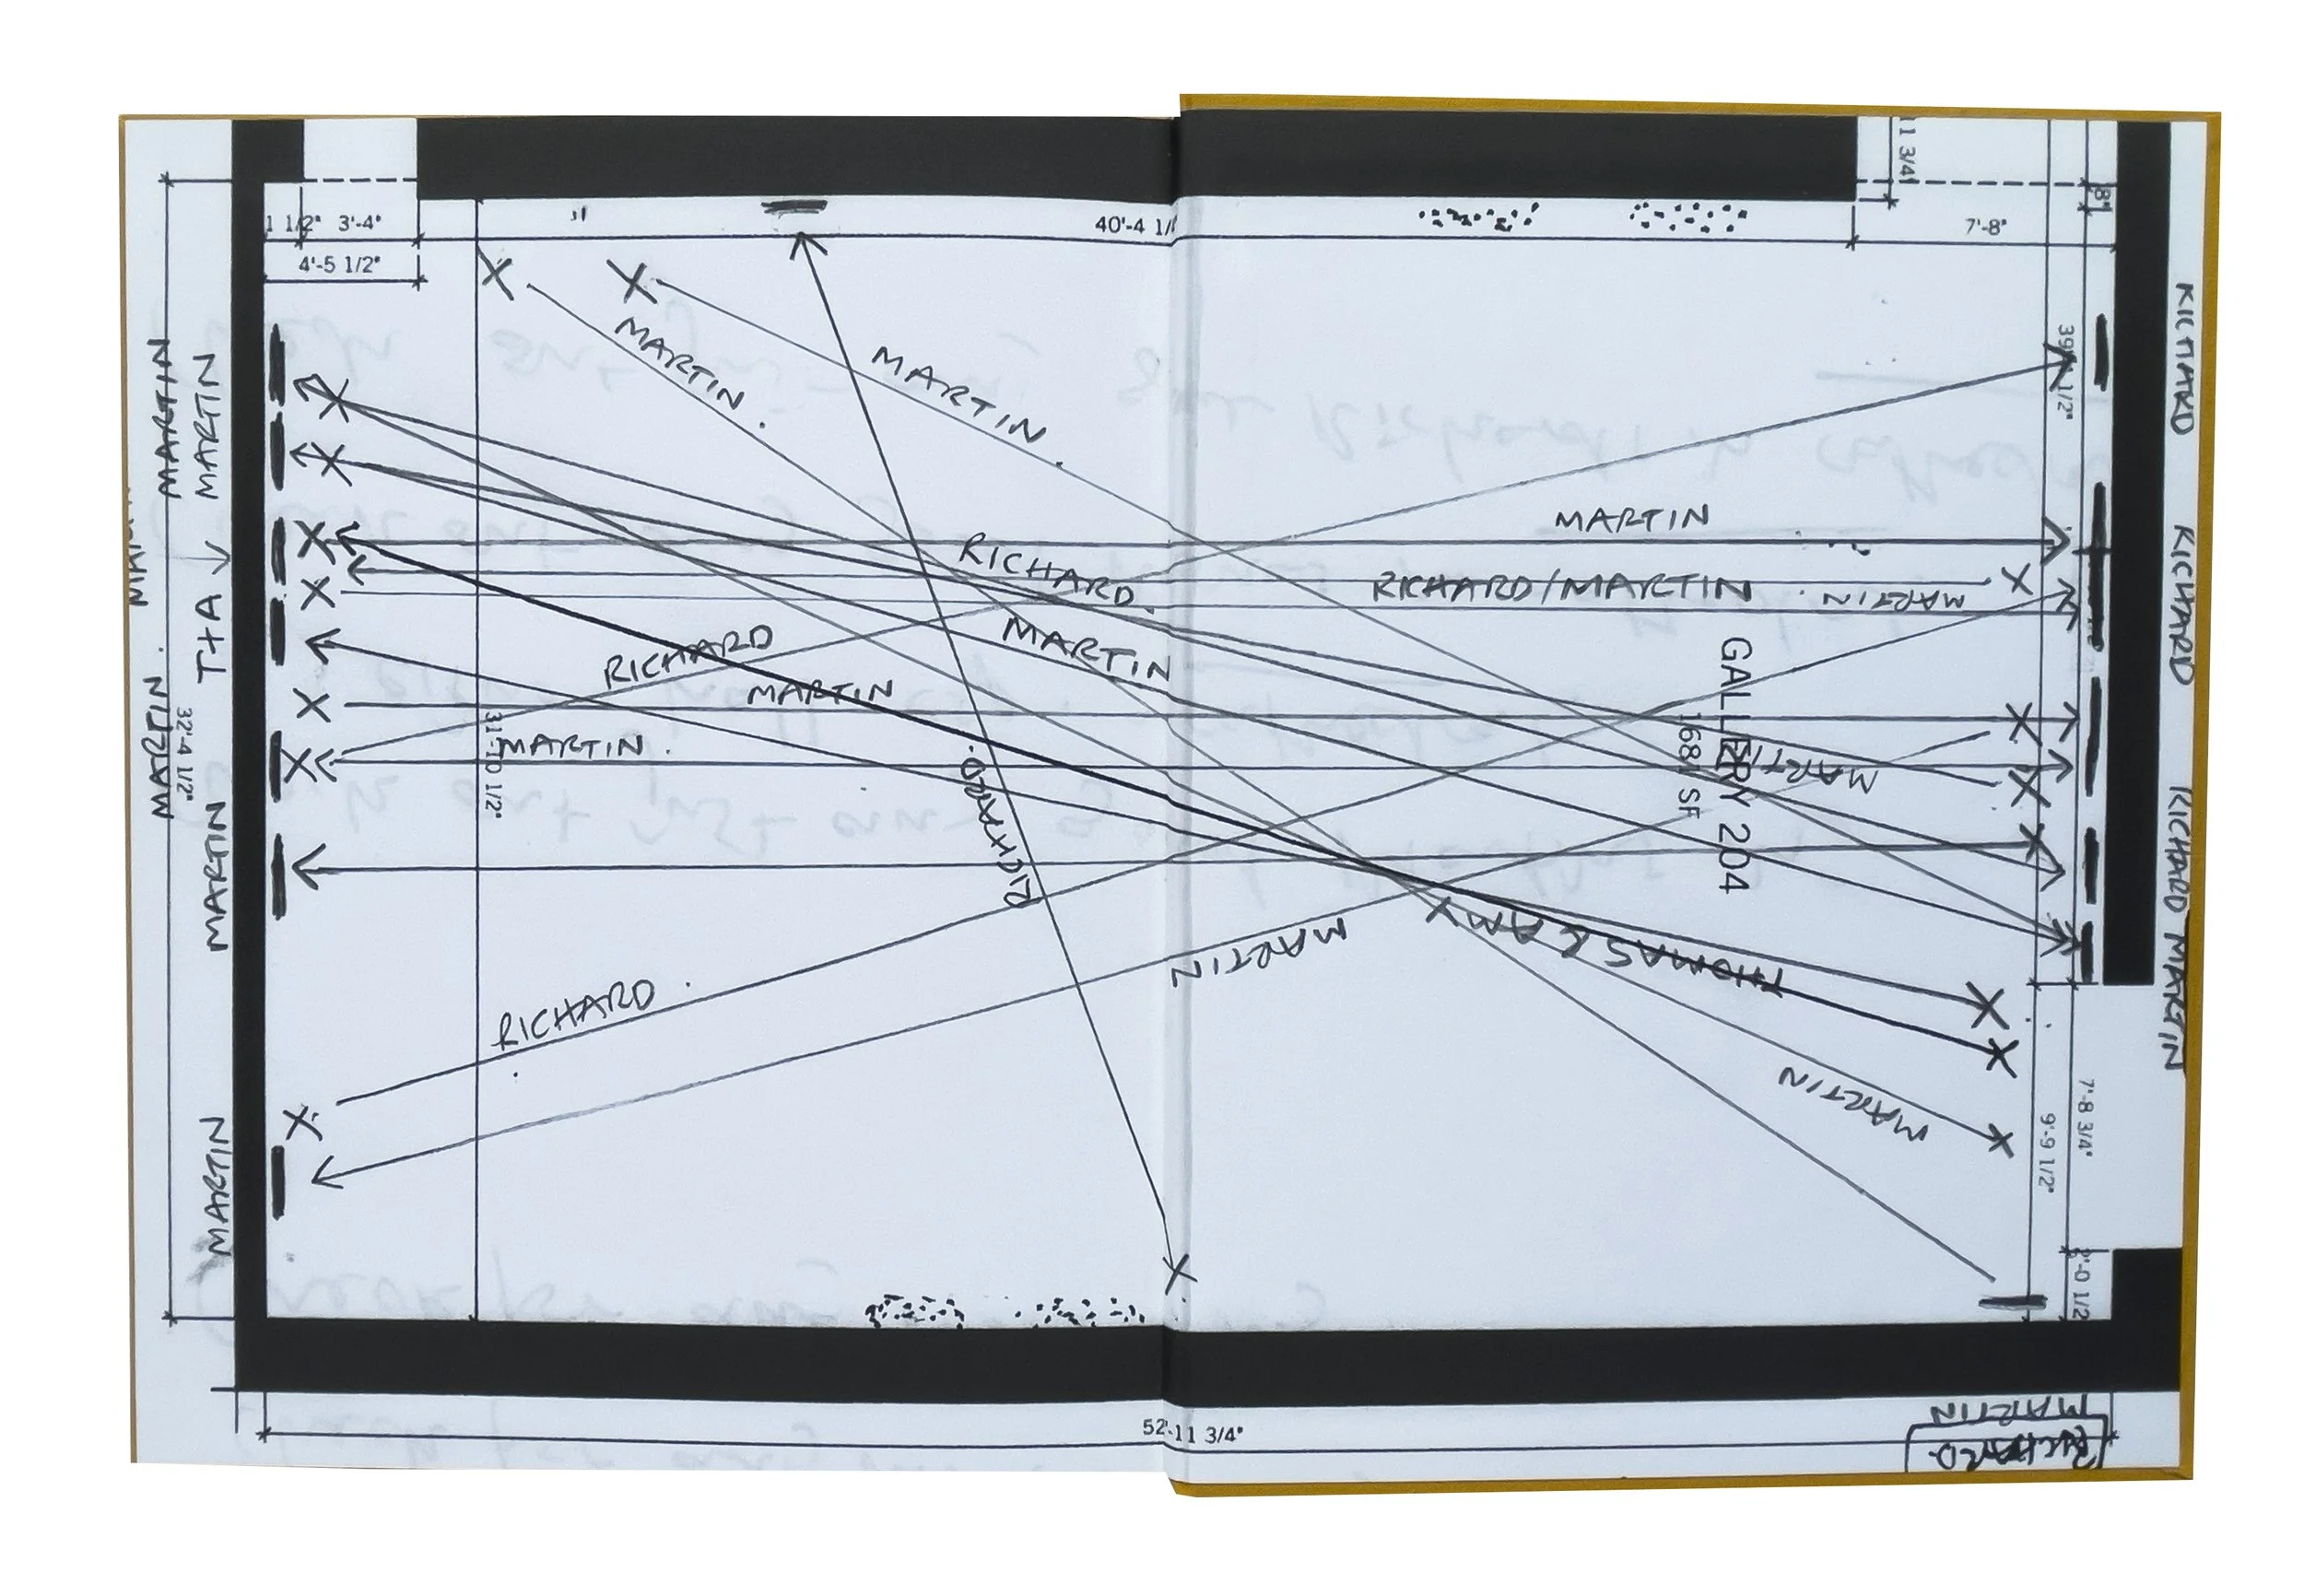 11 3/4"
8"
1 1/2"
3'-4"
40'-4 1/
7'-8"
4'-5 1/2"
MARTIN
MARTIN.
MARTIN.
RICHARD
MARTIN
MARTIN
RICHARD.
RICHARD/MARTIN
MARTIN.
RICHARD
T+A
MARTIN
RICHARD
MARTIN
MARTIN.
32'-4 1/2"
31'-10 1/2"
MARTIN.
GALLERY 204
MARTIN
RICHARD.
MARTIN
RICHARD MARTIN
THOMAS & AMY
MARTIN
RICHARD.
MARTIN
MARTIN
7'-8 3/4"
9'-9 1/2"
2'-0 1/2
52'-11 3/4"
MARTIN
RICHARD.